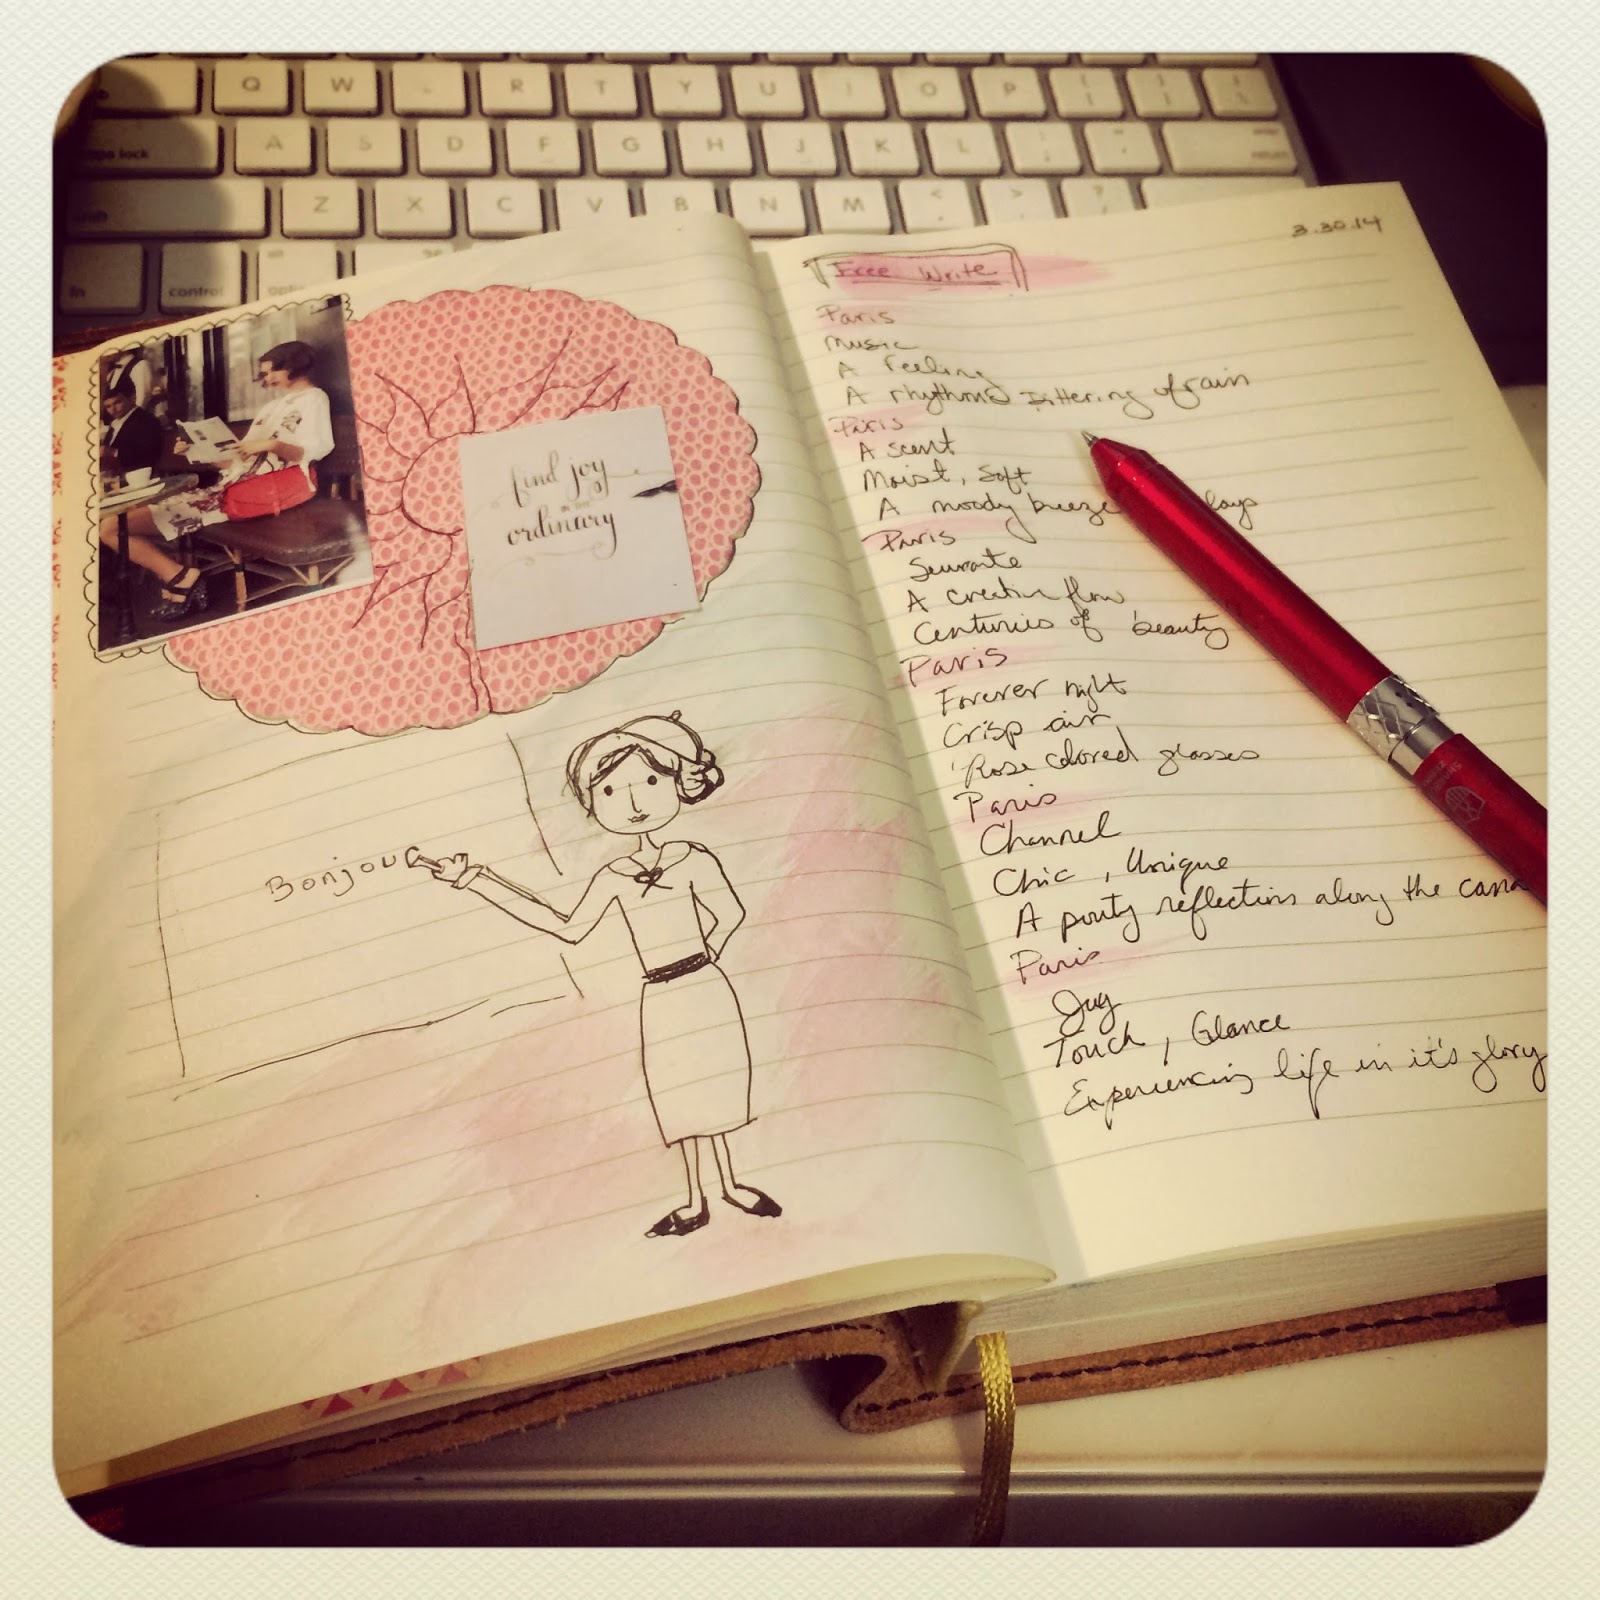 Q W R T Y U I O P
caps lock A S D F G H J K L
Z X C V B N M < > ?
fn control option
find joy
IN THE
ordinary
Bonjour
3.30.14
Free Write
Paris
Music
A feeling
A rhythmic of rain
Paris
A scent
Moist, soft
A moody breeze
Paris
A creative flow
Centuries of beauty
Paris
Forever night
Crisp air
Rose colored glasses
Paris
Channel
Chic, Unique
A pouty reflections along the
Paris
Touch, Glance
Experiencing life in it's glory